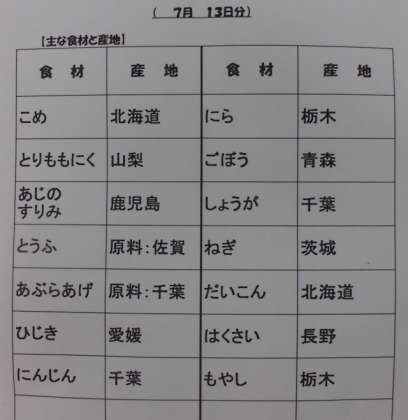 ( 7月 13日分)
【主な食材と産地】
食 材 産 地 食 材 産 地
こめ 北海道 にら 栃木
とりももにく 山梨 ごぼう 青森
あじの
すりみ 鹿児島 しょうが 千葉
とうふ 原料:佐賀 ねぎ 茨城
あぶらあげ 原料:千葉 だいこん 北海道
ひじき 愛媛 はくさい 長野
にんじん 千葉 もやし 栃木